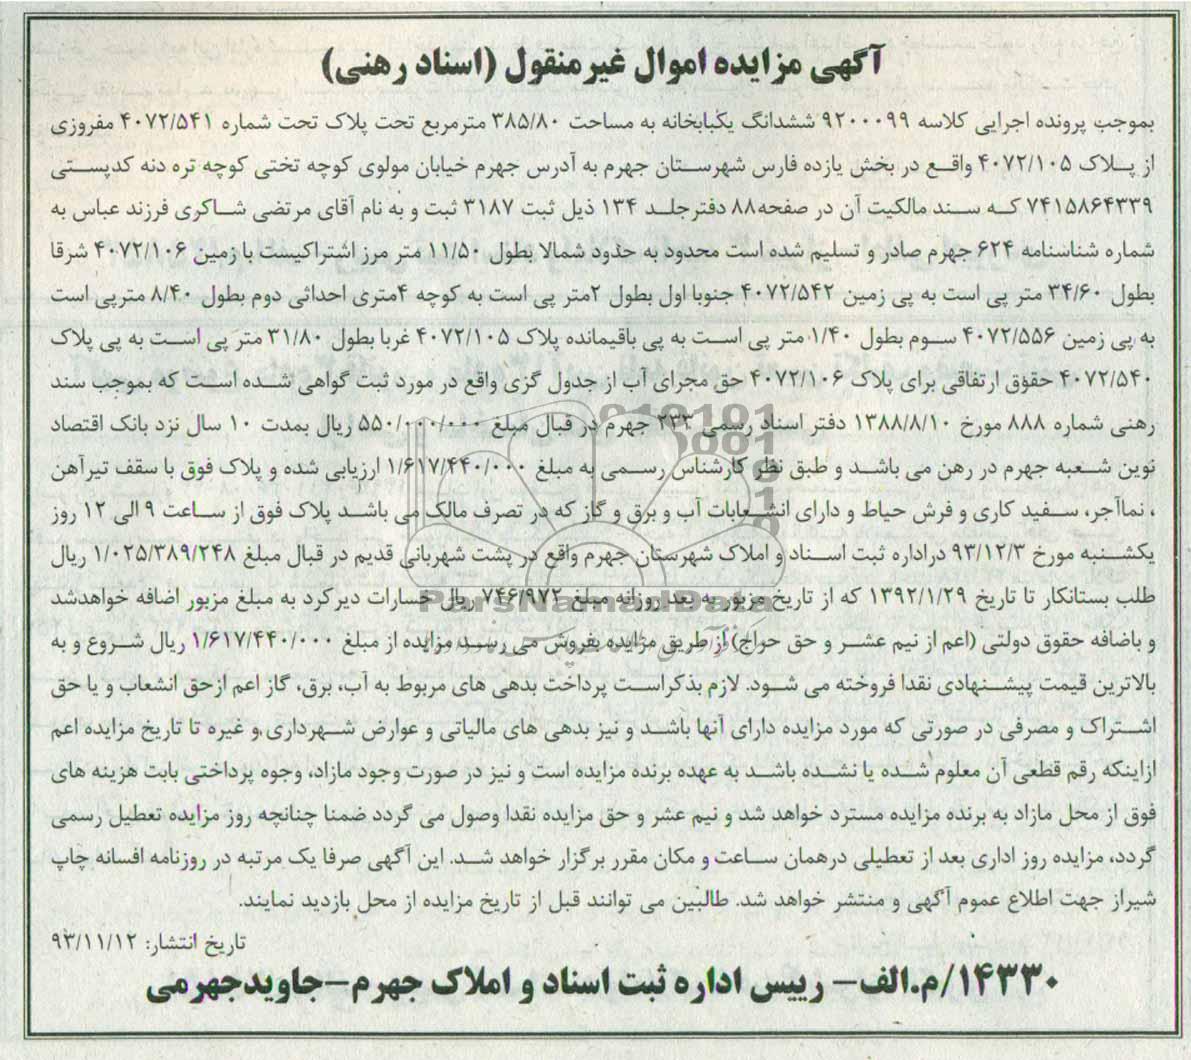 آگهی مزایده اموال غیرمنقول (اسناد رهنی)
بموجب پرونده اجرایی کلاسه ۹۲۰۰۰۹۹ ششدانگ یکبابخانه به مساحت ۳۸۵/۸۰ مترمربع تحت پلاک تحت شماره ۴۰۷۲/۵۴۱ مفروزی
از پلاک ۴۰۷۲/۱۰۵ واقع در بخش یازده فارس شهرستان جهرم به آدرس جهرم خیابان مولوی کوچه تختی کوچه تره دنه کدپستی
۷۴۱۵۸۶۴۳۳۹ که سند مالکیت آن در صفحه۸۸ دفترجلد ۱۳۴ ذیل ثبت ۳۱۸۷ ثبت و به نام آقای مرتضی شاکری فرزند عباس به
شماره شناسنامه ۶۲۴ جهرم صادر و تسلیم شده است محدود به حدود شمالا بطول ۱۱/۵۰ متر مرز اشتراکیست با زمین ۴۰۷۲/۱۰۶ شرقا
بطول ۳۴/۶۰ متر پی است به پی زمین ۴۰۷۲/۵۴۲ جنوبا اول بطول ۲متر پی است به کوچه ۴متری احداثی دوم بطول ۸/۴۰ مترپی است
به پی زمین ۴۰۷۲/۵۵۶ سوم بطول ۱/۴۰ متر پی است به پی باقیمانده پلاک ۴۰۷۲/۱۰۵ غربا بطول ۳۱/۸۰ متر پی است به پی پلاک
۴۰۷۲/۵۴۰ حقوق ارتفاقی برای پلاک ۴۰۷۲/۱۰۶ حق مجرای آب از جدول گزی واقع در مورد ثبت گواهی شده است که بموجب سند
رهنی شماره ۸۸۸ مورخ ۱۳۸۸/۸/۱۰ دفتر اسناد رسمی ۲۳۳ جهرم در قبال مبلغ ۵۵۰/۰۰۰/۰۰۰ ریال بمدت ۱۰ سال نزد بانک اقتصاد
نوین شعبه جهرم در رهن می باشد و طبق نظر کارشناس رسمی به مبلغ ۱/۶۱۷/۴۴۰/۰۰۰ ارزیابی شده و پلاک فوق با سقف تیرآهن
، نماآجر، سفید کاری و فرش حیاط و دارای انشعابات آب و برق و گاز که در تصرف مالک می باشد پلاک فوق از ساعت ۹ الی ۱۲ روز
یکشنبه مورخ ۹۳/۱۲/۳ دراداره ثبت اسناد و املاک شهرستان جهرم واقع در پشت شهربانی قدیم در قبال مبلغ ۱/۰۲۵/۳۸۹/۲۴۸ ریال
طلب بستانکار تا تاریخ ۱۳۹۲/۱/۲۹ که از تاریخ مزبور به بعد روزانه مبلغ ۷۴۶/۹۷۲ ریال خسارات دیرکرد به مبلغ مزبور اضافه خواهدشد
و باضافه حقوق دولتی (اعم از نیم عشر و حق حراج) از طریق مزایده بفروش می رسد مزایده از مبلغ ۱/۶۱۷/۴۴۰/۰۰۰ ریال شروع و به
بالاترین قیمت پیشنهادی نقدا فروخته می شود. لازم بذکراست پرداخت بدهی های مربوط به آب، برق، گاز اعم ازحق انشعاب و یا حق
اشتراک و مصرفی در صورتی که مورد مزایده دارای آنها باشد و نیز بدهی های مالیاتی و عوارض شهرداری و غیره تا تاریخ مزایده اعم
ازاینکه رقم قطعی آن معلوم شده یا نشده باشد به عهده برنده مزایده است و نیز در صورت وجود مازاد، وجوه پرداختی بابت هزینه های
فوق از محل مازاد به برنده مزایده مسترد خواهد شد و نیم عشر و حق مزایده نقدا وصول می گردد ضمنا چنانچه روز مزایده تعطیل رسمی
گردد، مزایده روز اداری بعد از تعطیلی درهمان ساعت و مکان مقرر برگزار خواهد شد. این آگهی صرفا یک مرتبه در روزنامه افسانه چاپ
شیراز جهت اطلاع عموم آگهی و منتشر خواهد شد. طالبین می توانند قبل از تاریخ مزایده از محل بازدید نمایند.
تاریخ انتشار: ۹۳/۱۱/۱۲
۱۴۳۳۰/م.الف- رییس اداره ثبت اسناد و املاک جهرم-جاویدجهرمی
ParsNamadData